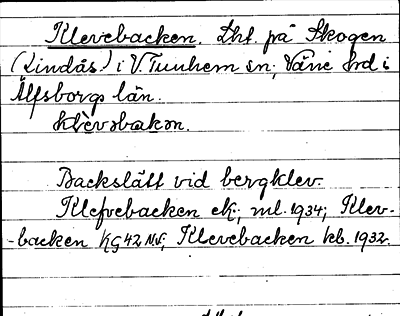 Klevebacken. Lht. på Skogen
(Lindås) i V. Tunhem sn; Väne hrd i
Älfsborgs län.
klèvəbakən.
Backslätt vid bergklev.
Klefvebacken ek.; ml. 1934; Klev-
-backen KG 42 NV; Klevebacken kb. 1932.